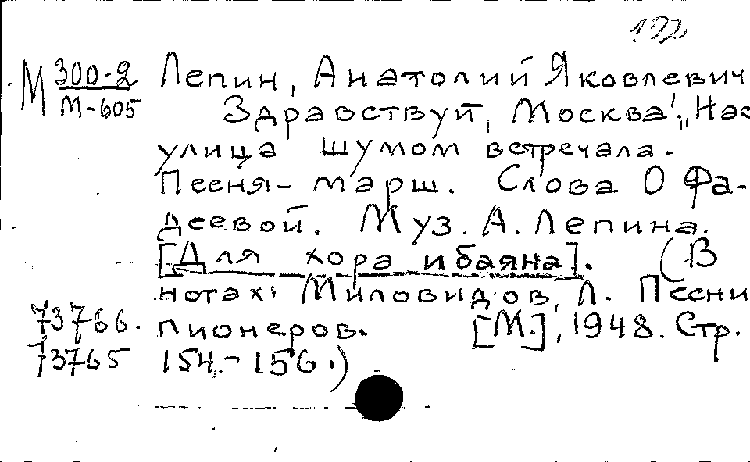 М 300-2 Лепин, Анатолий Яковлевич
М-605 Здравствуй, Москва! „Нас
улица шумом встречала.
Песня - марш. Слова О Фа-
деевой. Муз. А. Лепина.
[Для хора и баяна]. (В
нотах: Миловидов, Л. Песни
73766. пионеров. [М.], 1948. Стр.
73765 154.-156.)